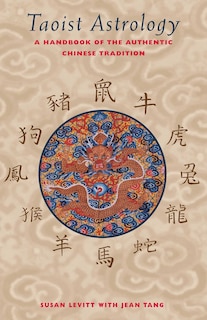 Taoist Astrology
A HANDBOOK OF THE AUTHENTIC
CHINESE TRADITION
鼠
豬 牛
狗 虎
鳳 兔
猴 龍
羊 蛇
馬
SUSAN LEVITT WITH JEAN TANG